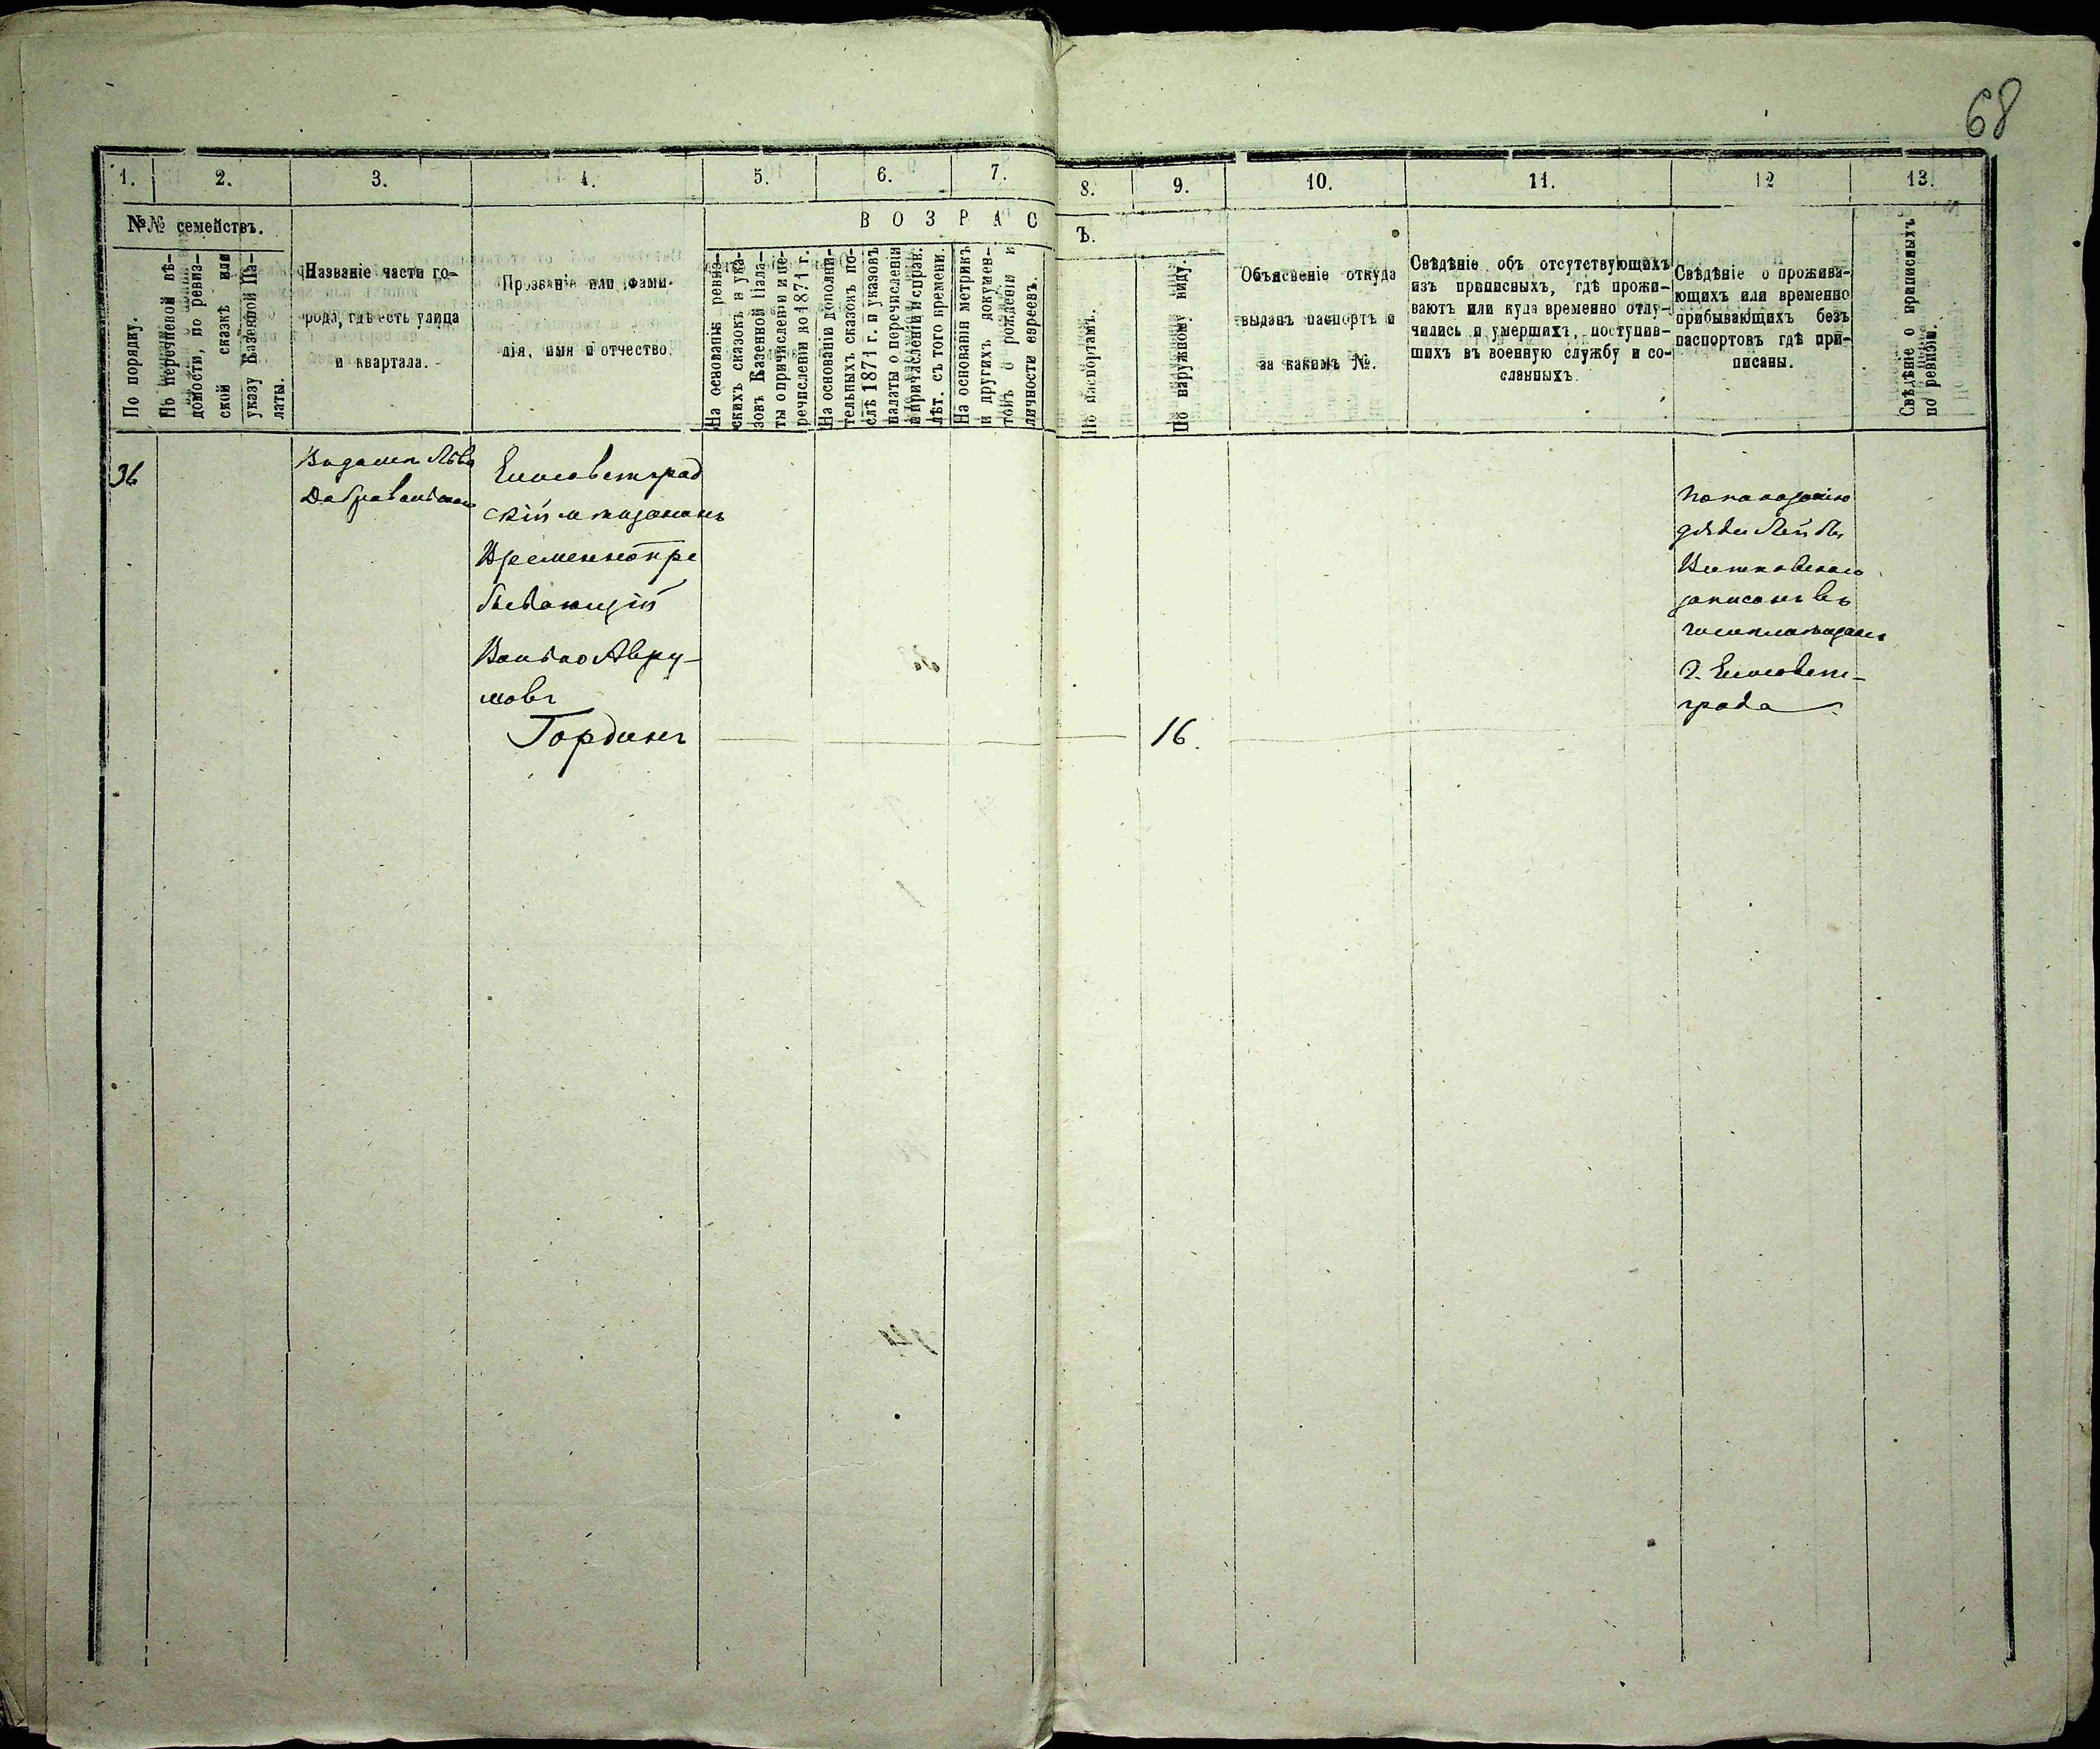 68
1.
2.
3.
4.
5.
6.
7.
8.
9.
10.
11.
12
13.
№№ семействъ.
По порядку.
По перечневой вѣ-
домости, по ревиз-
ской сказкѣ или
указу Казенной Па-
латы.
Названіе части го-
рода, гдѣ есть улица
и квартала.
Прозваніе или фами-
лія, имя и отчество.
ВОЗРАС
Ъ.
На основаніи ревиз-
скихъ сказокъ и ука-
зовъ Казенной Пала-
ты о причисленіи и пе-
речисленіи до 1871 г.
На основаніи дополни-
тельныхъ сказокъ по-
слѣ 1871 г. и указовъ
палаты о перечисленіи
и причисленіи и справ.
лѣт. съ того времени.
На основаніи метрикъ
и другихъ докумен-
товъ о рожденіи и
личности евреевъ.
По паспортамъ.
По наружному виду.
Объясненіе откуда
выданъ паспортъ и
за какимъ №.
Свѣдѣніе объ отсутствующихъ
изъ приписныхъ, гдѣ прожи-
ваютъ или куда временно отлу-
чились и умершихъ, поступив-
шихъ въ военную службу и со-
сланныхъ.
Свѣдѣніе о прожива-
ющихъ или временно
прибывающихъ безъ
паспортовъ гдѣ при-
писаны.
Свѣдѣніе о приписныхъ
по ревизіи.
36
Елисаветград
скій мищанинъ
Временно пре
бывающій
Авру-
мовъ
Гординъ
16.
По показанію
дяди Лейбы
записанъ въ
число мищанъ
г. Елисавет-
града